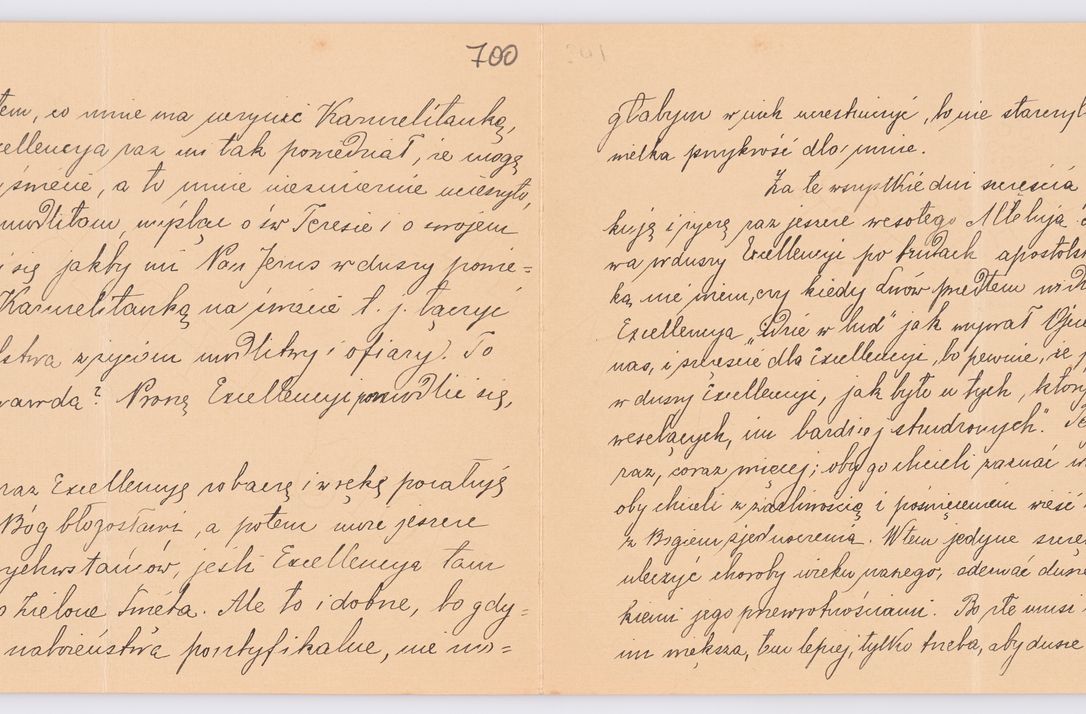 700
tem, co mnie ma uczynić Karmelitanką,
cellencya raz mi tak powiedział, że mogę
świecie, a to mnie niezmiernie ucieszyło,
modliłam, myśląc o św Teresie i o swojem
i się jakby mi Pan Jezus w duszy powie=
Karmelitanką na świecie t. j. łączyć
lstwa z życiem modlitwy i ofiary). To
rawda? Proszę Excellencyi pomodlić się,
raz Excellencyę zobaczę i w rękę pocałuję
Bóg błogosławi, a potem może jeszcze
ychwstańców, jeśli Excellencya tam
o Zielone Święta. Ale to i dobrze, bo gdy=
nabożeństwa pontyfikalne, nie mo=
głabym w nich uczestniczyć, bo nie starczyło
wielka przykrość dla mnie.
Za te wszystkie dni szczęścia
kuję i życzę raz jeszcze wesołego Alleluja
wa w duszy Excellencyi po trudach apostols
ką, nie wiem, czy kiedy Lwów przedtem widz
Excellencya "idzie w lud" jak wyrwał Ojc
nas, i szczęście dla Excellencyi, bo pewnie, że
w duszy Excellencyi, jak było w tych, który
weselących, im bardziej strudzonych".
raz, coraz więcej; oby go chcieli zaznać
oby chcieli z żarliwością i poświęceniem wieść
z Bogiem zjednoczenia. W tem jedyne szczę
uleczyć choroby wieku naszego, oderwać dusze
kiemi jego przewrotnościami. Bo złe musi
im większa, tem lepiej, tylko trzeba, aby dusze